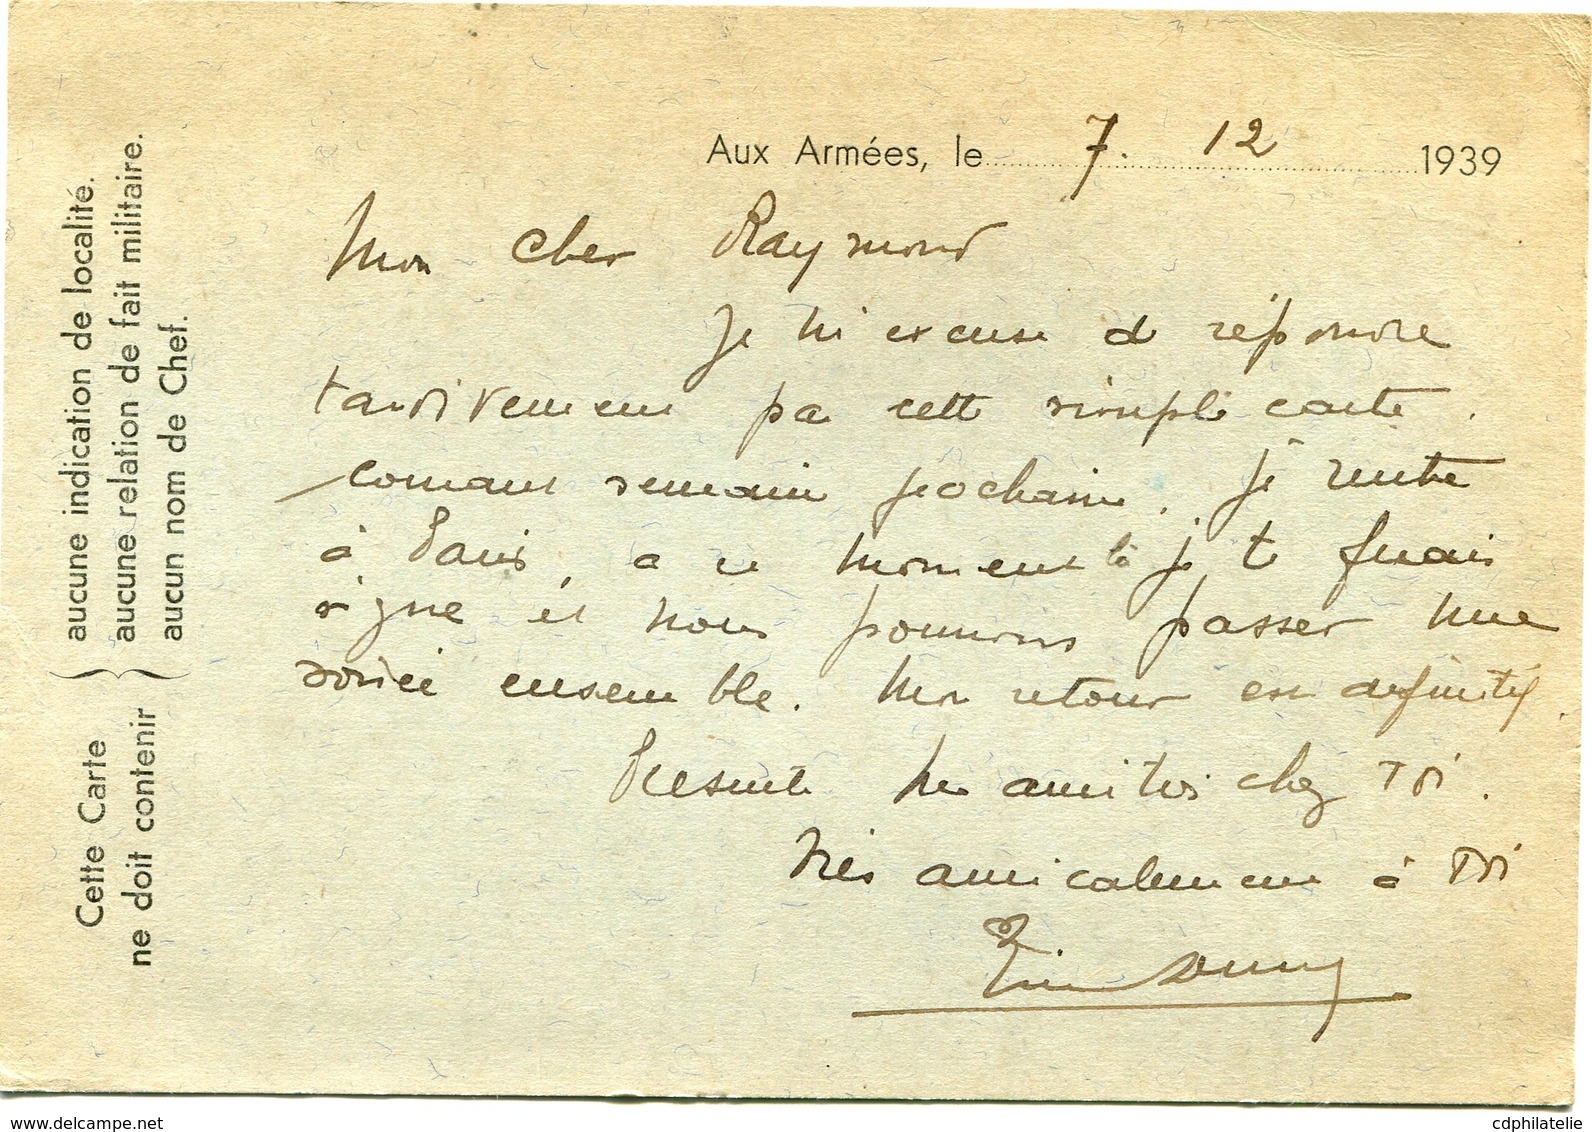 Aux Armées, le 7. 12 1939
Mon cher Raymond
Je m'excuse de répondre
tardivement par cette simple carte.
courant semaine prochaine, je rentre
à Paris, a ce moment là je te ferais
signe et nous pourrons passer une
soirée ensemble. Mon retour est définitif.
Présente mes amitiés chez toi.
très amicalement à toi
Cette Carte
ne doit contenir
aucune indication de localité.
aucune relation de fait militaire.
aucun nom de Chef.
www.delcampe.net
cdphilatelie